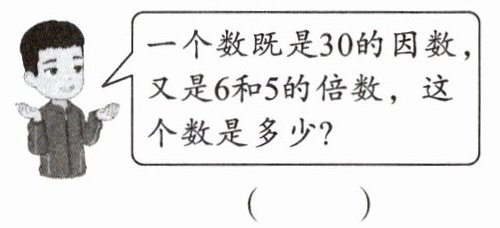 一个数既是30的因数，
又是6和5的倍数，这
个数是多少？
（　　）